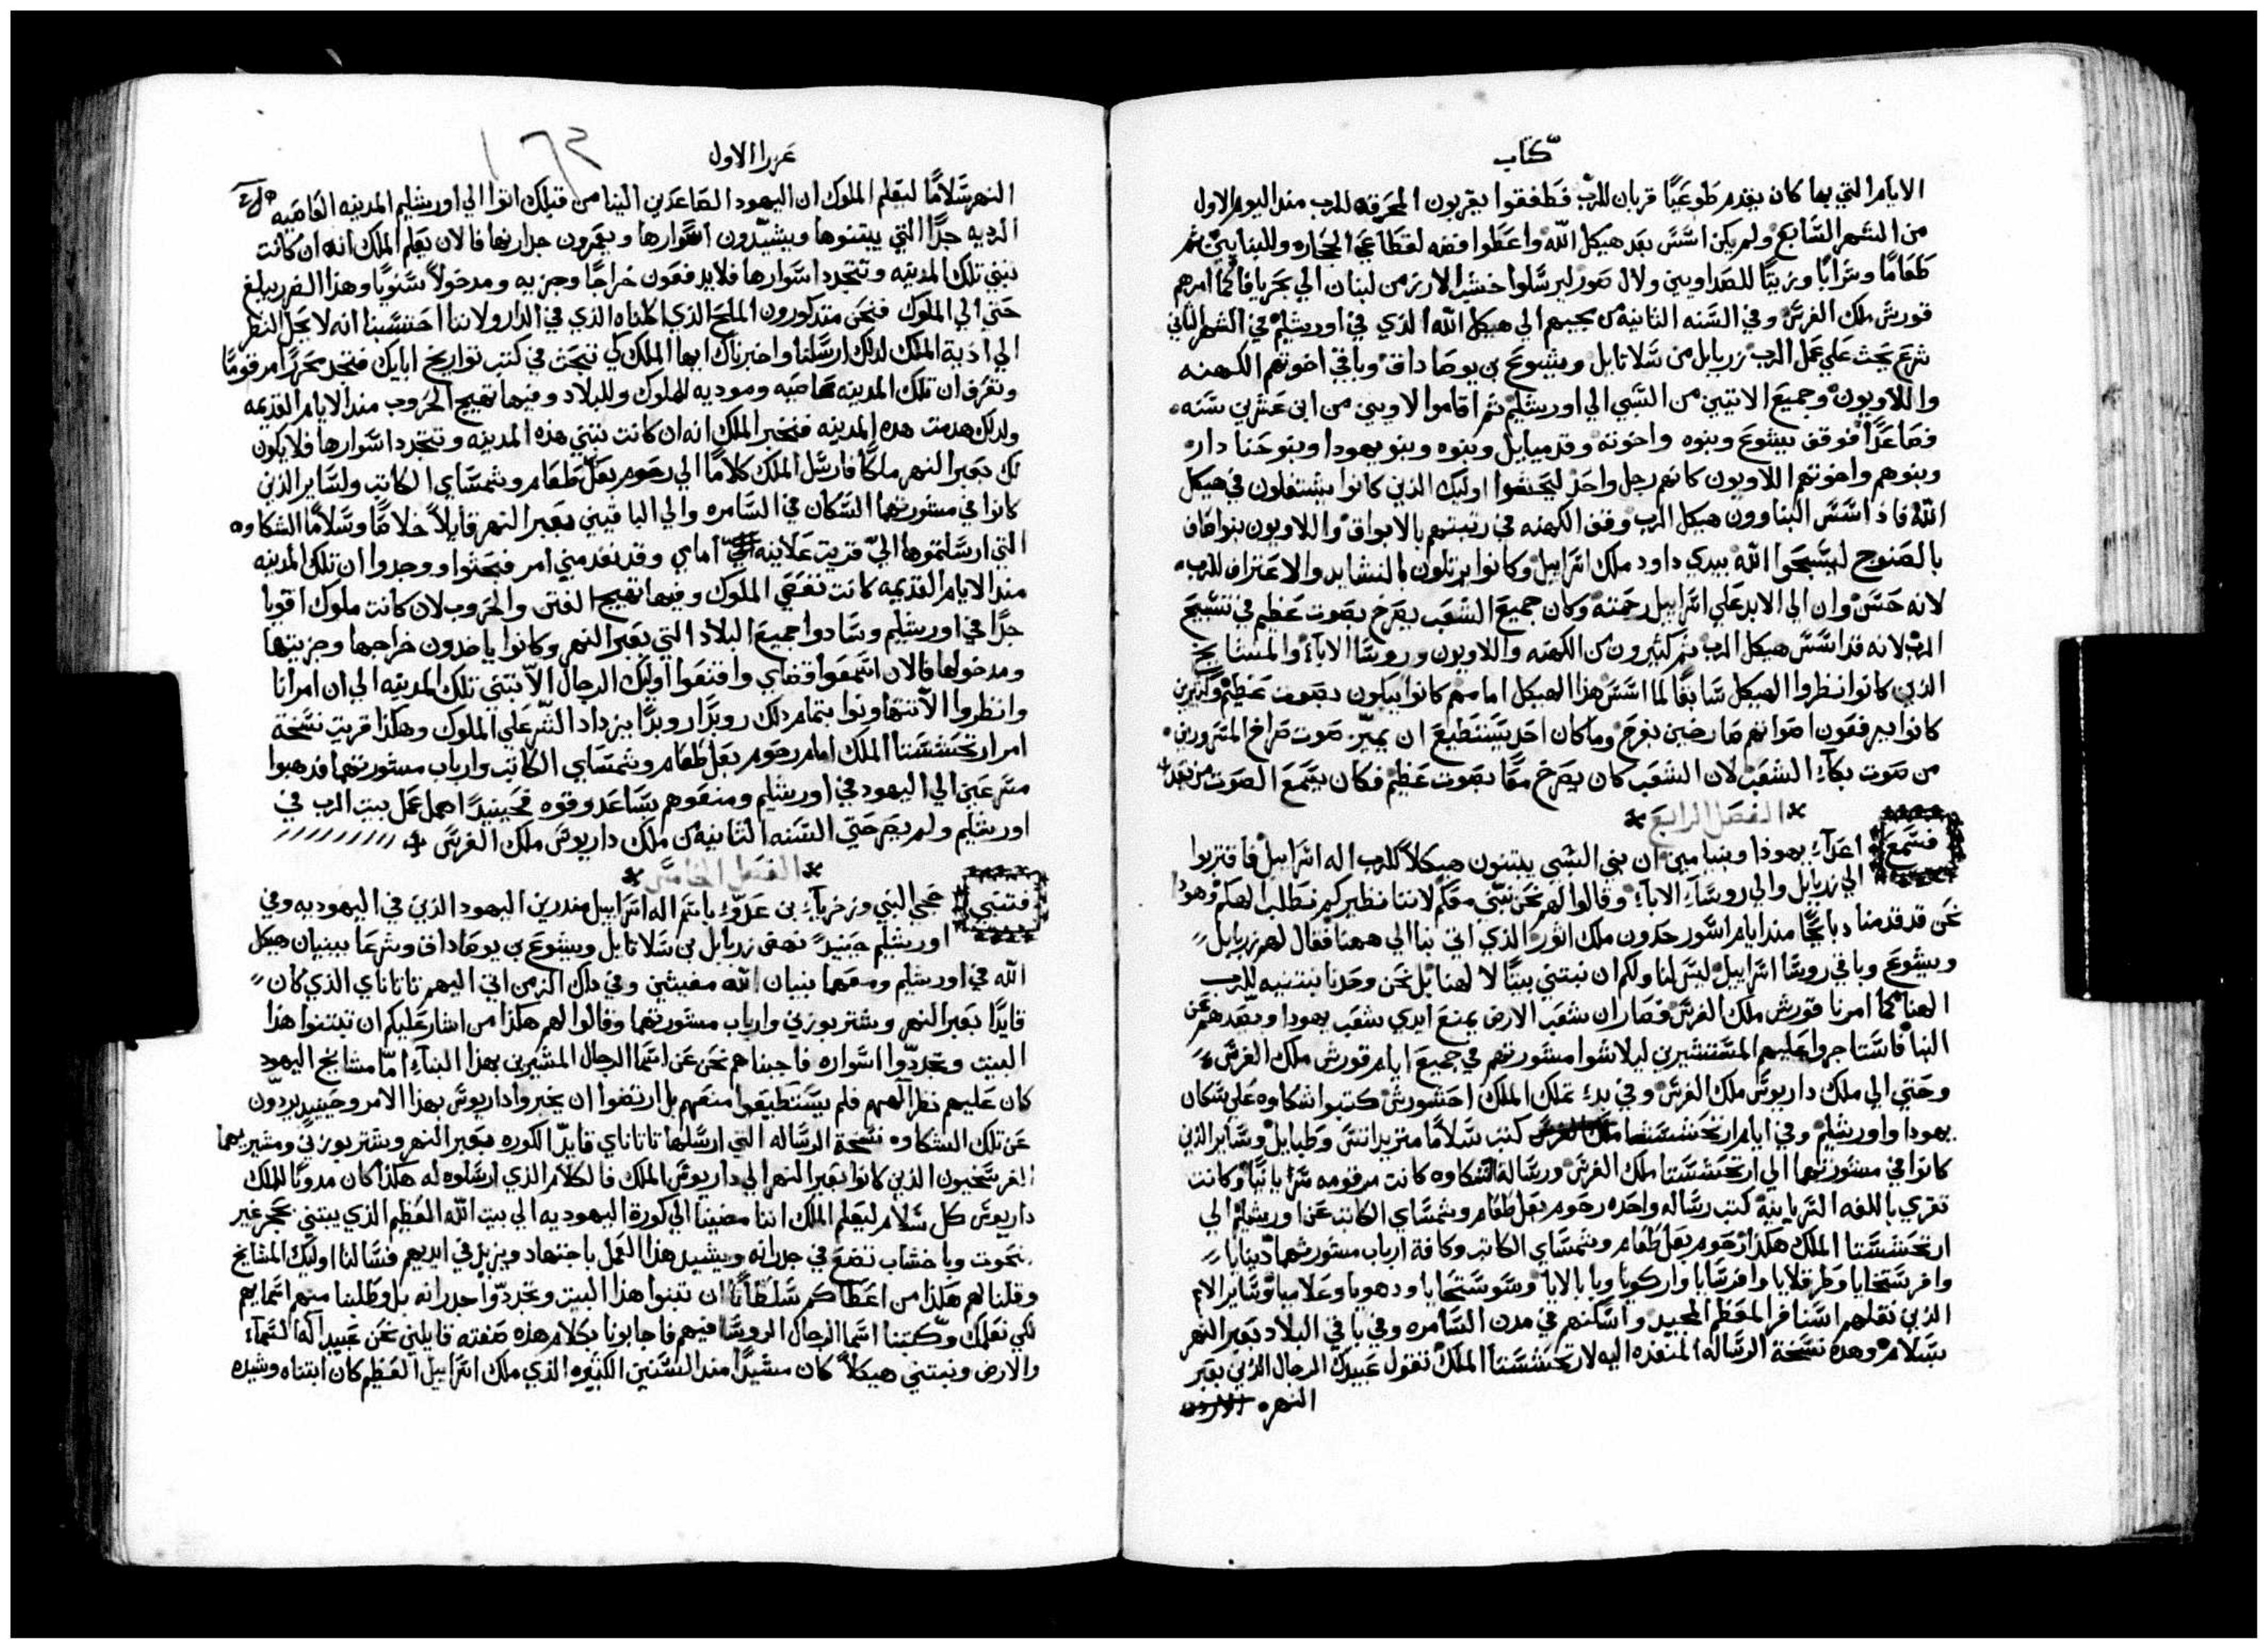 كتاب
الايام التي بها كان يقدم طوعيًا قربان للرب فطفقوا يقربون المحرقه للرب مند اليوم الاول
من الشهر السابع ولم يكن اسس بعد هيكل الله واعطوا فضه لقطاعي الحجاره وللبنايين ثم
طعامًا وشرابًا وزيتًا للصداويين ولال صور ليرسلوا خشب الارز من لبنان الي بحر يافا كما امرهم
قورش ملك الفرس وفي السنه الثانيه من مجيهم الي هيكل الله الذي في اورشليم في الشهر الثاني
شرع يحث علي عمل الرب زربابل من سلاتايل ويشوع بن يوصاداق وباقي اخوتهم الكهنه
واللاويون وجميع الاتيين من السبي الي اورشليم ثم اقاموا لاويين من ابن عشرين سنه
فصاعدًا فوقف يشوع وبنوه واخوته وقدميايل وبنوه وبنو يهودا وبنو حنا دار
وبنوهم واخوتهم اللاويون كانهم رجل واحد ليحثوا اوليك الذين كانوا يشتغلون في هيكل
الله فاذ اسس البناوون هيكل الرب وقف الكهنه في رتبتهم بالابواق واللاويون بنو اصاف
بالصنوج ليسبحوا الله بيدي داود ملك اسراييل وكانوا يرتلون بالنشايد والاعتراف للرب
لانه حسن وان الي الابد علي اسراييل رحمته وكان جميع الشعب يصرخ بصوت عظيم في تسبيح
الرب لانه قد اسس هيكل الرب ثم كثيرون من الكهنه واللاويون وروسا الاباء والمشايخ
الذين كانوا نظروا الهيكل سابقًا لما اسس هذا الهيكل امامهم كانوا يبكون بصوت عظيم وكثيرين
كانوا يرفعون اصواتهم صارخين بفرح وما كان احد يستطيع ان يميّز صوت صراخ المسرورين
من صوت بكاء الشعب لان الشعب كان يصرخ معًا بصوت عظيم فكان يسمع الصوت من بعد
الفصل الرابع
فسمع اعداء يهودا وبنيامين ان بني السبي يبتنون هيكلاً للرب اله اسراييل فاقتربوا
الي زربابل والي روساء الاباء وقالوا لهم نحن نبني معكم لاننا نظيركم نطلب الهكم وهودا
نحن قد قدمنا دبايحًا مند ايام اسور حدون ملك اتور الذي اتي بنا الي ههنا فقال لهم زربابل
ويشوع وباقي روسا اسراييل ليس لنا ولكم ان نبتني بيتًا لالهنا بل نحن وحدنا نبتنيه للرب
الهنا كما امرنا قورش ملك الفرس فصار ان شعب الارض يمنع ايدي شعب يهودا ويصدهم عن
البنا فاستاجروا عليهم المستشيرين ليلاشوا مشورتهم في جميع ايام قورش ملك الفرس
وحتي الي ملك داريوس ملك الفرس وفي بدء تملك الملك احشورش كتبوا شكاوه علي سكان
يهودا واورشليم وفي ايام ارتحششتا كتب سلامًا متريداتس وطبايل وساير الذين
كانوا في مشورتهما الي ارتحششتا ملك الفرس ورسالة الشكاوه كانت مرقومه سريانيًا وكانت
تقري باللغه السريانيه كتب رساله واحده رحوم بعل طعام وشمساي الكاتب عن اورشليم الي
ارتحششتا الملك هكذا رحوم بعل طعام وشمساي الكاتب وكافة ارباب مشورتهما دينايا
وافرستحايا وطرفلايا وافرسايا واركويا وبابالايا وسوسنحايا ودهويا وعلاميا وساير الامم
الذين نقلهم اسنافر المعظم المجيد واسكنهم في مدن السامره وفي باقي البلاد بعبر النهر
بسلام وهده نسخة الرساله المنفذه اليه لارتحششتا الملك نقول عبيدك الرجال الذين بعبر
النهر
عزرا الاول
النهر سلامًا ليعلم الملوك ان اليهود الصاعدين الينا من قبلك اتوا الي اورشليم المدينه العاصيه
الرديه جدًا التي يبتنوها ويشيّدون اسوارها ويعمرون جدارنها فالان يعلم الملك انه ان كانت
تبني تلك المدينه وتتجدد اسوارها فلا يدفعون خراجًا وجزيه ومدخولاً سنويًا وهذا الضرر يبلغ
حتي الي الملوك فنحن متدكورون الملح الذي اكلناه الذي في الدار ولاننا احتسبنا انه لا يحل النظر
الي اذية الملك لدلك ارسلنا واخبرناك ايها الملك لكي تبحث في كتب تواريخ ابايك فتجد محررًا مرقومًا
وتعرف ان تلك المدينه عاصيه وموديه للملوك وللبلاد وفيها تهيج الحروب مند الايام القديمه
ولدلك هدمت هده المدينه فنخبر الملك انه ان كانت تبتني هذه المدينه وتتجدد اسوارها فلا يكون
لك بعبر النهر ملكًا فارسل الملك كلامًا الي رحوم بعل طعام وشمساي الكاتب ولساير الذين
كانوا في مشورتهما السكان في السامره والي الباقيين بعبر النهر قايلاً خلاصًا وسلامًا الشكاوه
التي ارسلتموها اليّ قريت علانيه امامي وقد نفد مني امر فبحثوا ووجدوا ان تلك المدينه
مند الايام القديمه كانت تعصي الملوك وفيها تهيج الفتن والحروب لان كانت ملوك اقويا
جدًا في اورشليم وسادوا جميع البلاد التي بعبر النهر وكانوا ياخدون خراجها وجزيتها
ومدخولها فالان اسمعوا قضاي وامنعوا اوليك الرجال الاّ تبتني تلك المدينه الي ان امر انا
وانظروا الاّ تتهاونوا بتمام دلك رويدًا رويدًا يزداد الشر علي الملوك وهكذا قريت نسخة
امر ارتحششتا الملك امام رحوم بعل طعام وشمساي الكاتب وارباب مشورتهما فدهبوا
مسرعين الي اليهود في اورشليم ومنعوهم بساعد وقوه فحينيدًا اهمل عمل بيت الرب في
اورشليم ولم يصر حتي السنه الثانيه من ملك داريوس ملك الفرس
الفصل الخامس
فتنبي حجي النبي وزخرياء بن عدّو باسم اله اسراييل مندرين اليهود الذين في اليهوديه وفي
اورشليم حينيدً نهض زربابل بن سلاتايل ويشوع بن يوصاداق وشرعا ببنيان هيكل
الله في اورشليم ومعهما بنيان الله مغيثين وفي دلك الزمن اتي اليهم تاتاناي الذي كان
قايدًا بعبر النهر وشتر بوزني وارباب مشورتهما وقالوا لهم هكذا من اشار عليكم ان تبتنوا هذا
البيت وتجددّوا اسواره فاجبناهم نحن عن اسما الرجال المشيرين بهذا البناء امّا مشايخ اليهود
كان عليهم نظر الههم فلم يستطيعوا منعهم بل ارتضوا ان يخبروا داريوس بهذا الامر وحينيد يردّون
عن تلك الشكاوه نسخة الرساله التي ارسلها تاتاناي قايد الكوره بعبر النهر وشتر بوزني ومشيريهما
الفرستخيون الذين كانوا بعبر النهر الي داريوس الملك فالكلام الذي ارسلوه له هكذا كان مدونًا للملك
داريوس كل سلام ليعلم الملك اننا مضينا الي كورة اليهوديه الي بيت الله العظيم الذي يبتني بحجر غير
منحوت وباخشاب تضع في جدرانه ويشيد هذا العمل باجتهاد ويزيل في ايديهم فسالنا اوليك المشايخ
وقلنا لهم هكذا من اعطاكم سلطانًا ان تبنوا هذا البيت وتجددّوا جدرانه بل وطلبنا منهم اسمايهم
لكي نعلمك وكتبنا اسما الرجال الروسا فيهم فاجابونا بكلام هذه صفته قايلين نحن عبيد اله السماء
والارض ونبتني هيكلاً كان مشيدًا مند السنين الكثيره الذي ملك اسراييل العظيم كان ابتناه وشيده